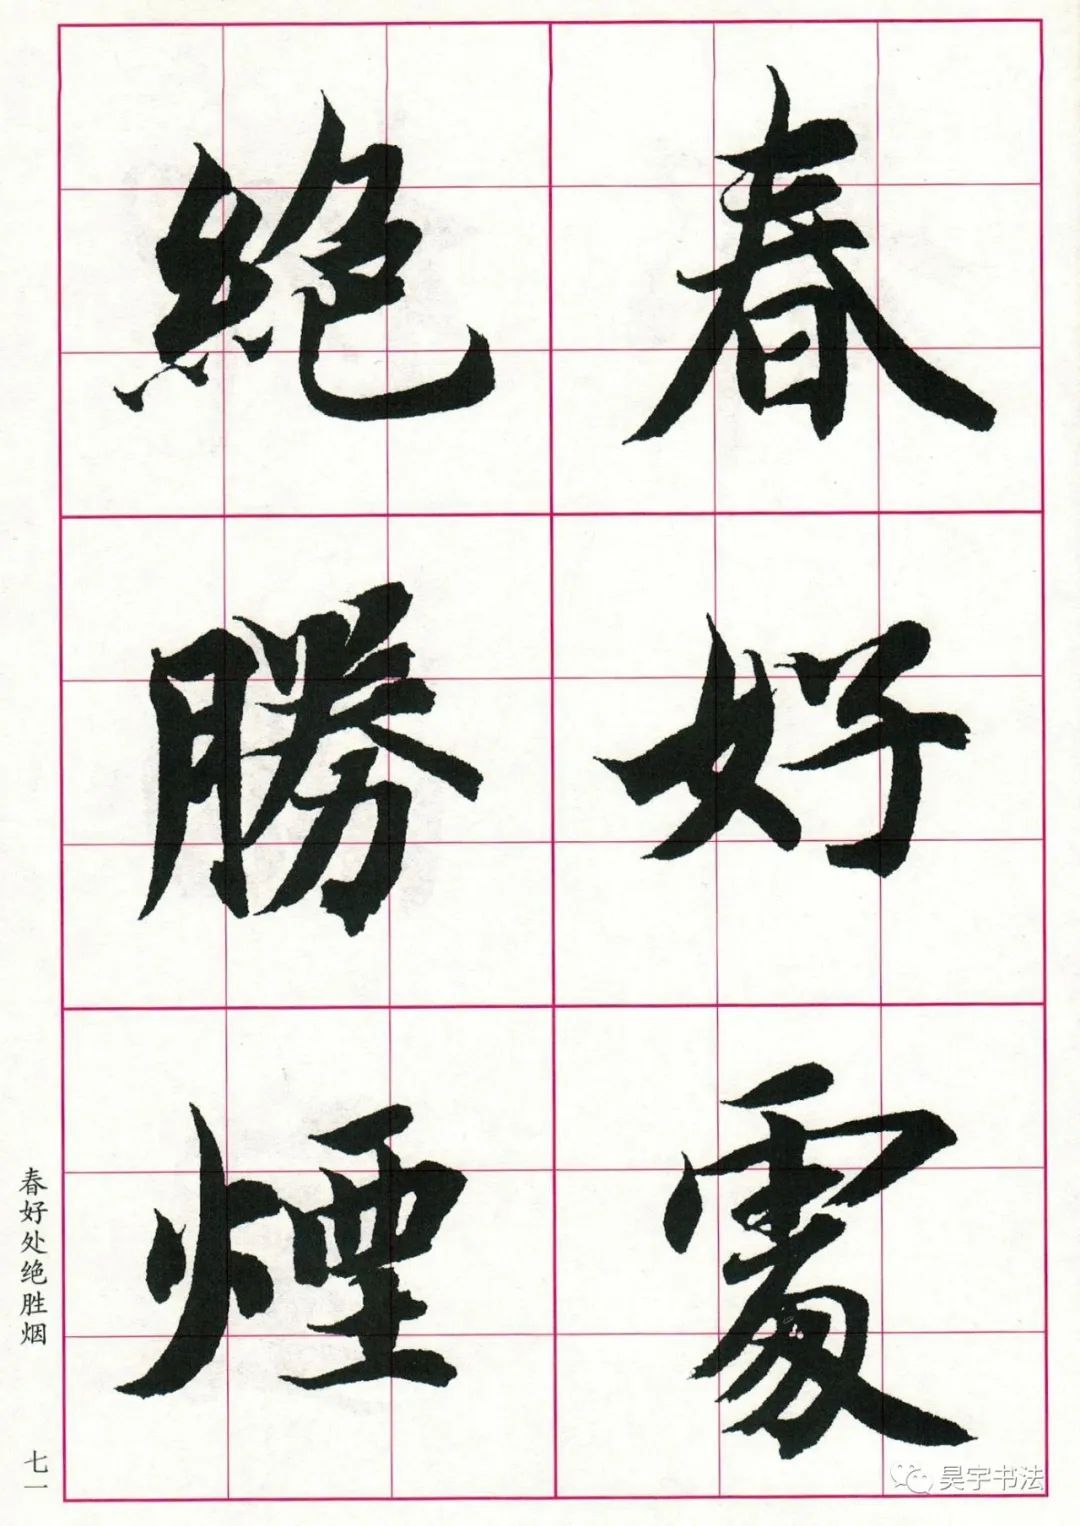 春好處
絕勝煙
春好处绝胜烟
七一
昊宇书法